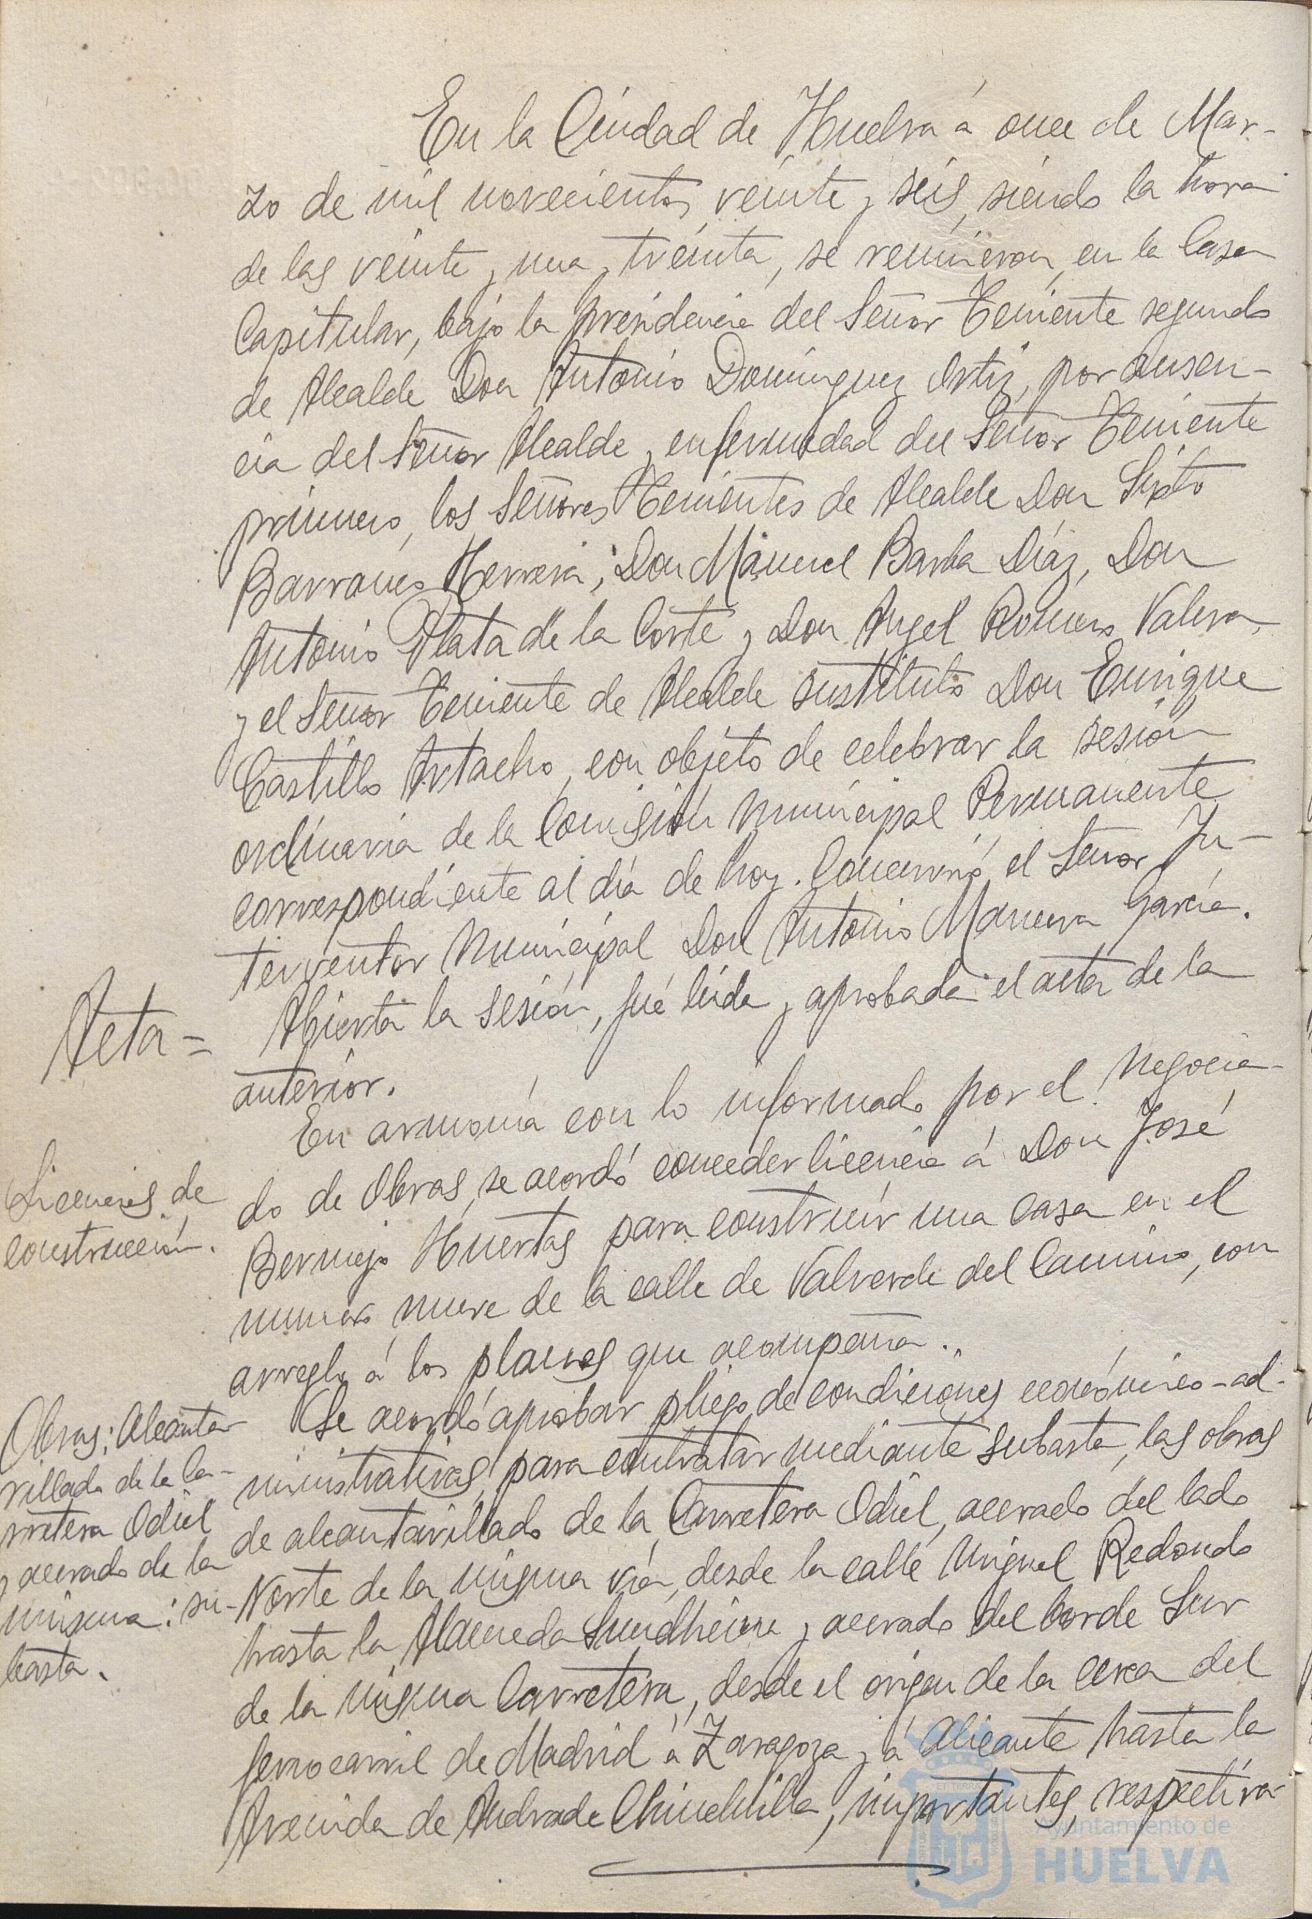 En la Ciudad de Huelva á once de Mar-
zo de mil novecientos veinte y seis, siendo la hora
de las veinte y una y treinta, se reunieron en la Casa
Capitular, bajo la presidencia del Señor Teniente segundo
de Alcalde Don Antonio Domínguez Ortiz, por ausen-
cia del Señor Alcalde y enfermedad del Señor Teniente
primero, los Señores Tenientes de Alcalde Don Sixto
Barranco Herrera; Don Manuel Barba Díaz, Don
Antonio Plata de la Corte y Don Angel Romero Valera,
y el Señor Teniente de Alcalde sustituto Don Enrique
Castillo Artacho, con objeto de celebrar la sesión
ordinaria de la Comisión Municipal Permanente
correspondiente al día de hoy. Concurrió el Señor In-
terventor Municipal Don Antonio García.
Acta=
Abierta la sesión, fué leída y aprobada el acta de la
anterior.
Licencias de
construcción.
En armonía con lo informado por el Negocia-
do de Obras, se acordó conceder licencia á Don José
Bermejo Huertas para construír una casa en el
número nueve de la calle de Valverde del Camino, con
arreglo á los planos que acompaña.
Obras: Alcantar
rillado de la Ca-
rretera Odiel
y acerado de la
misma: su-
basta.
Se acordó aprobar pliego de condiciones económico-ad-
ministrativas para contratar mediante subasta, las obras
de alcantarillado de la Carretera Odiel, acerado del lado
Norte de la misma vía, desde la calle Miguel Redondo
hasta la Alameda Sundheim y acerado del borde Sur
de la misma Carretera, desde el origen de la cerca del
ferrocarril de Madrid á Zaragoza y á Alicante hasta la
Avenida de Andrade Chinchilla, importantes, respectiva-
Ayuntamiento de
HUELVA